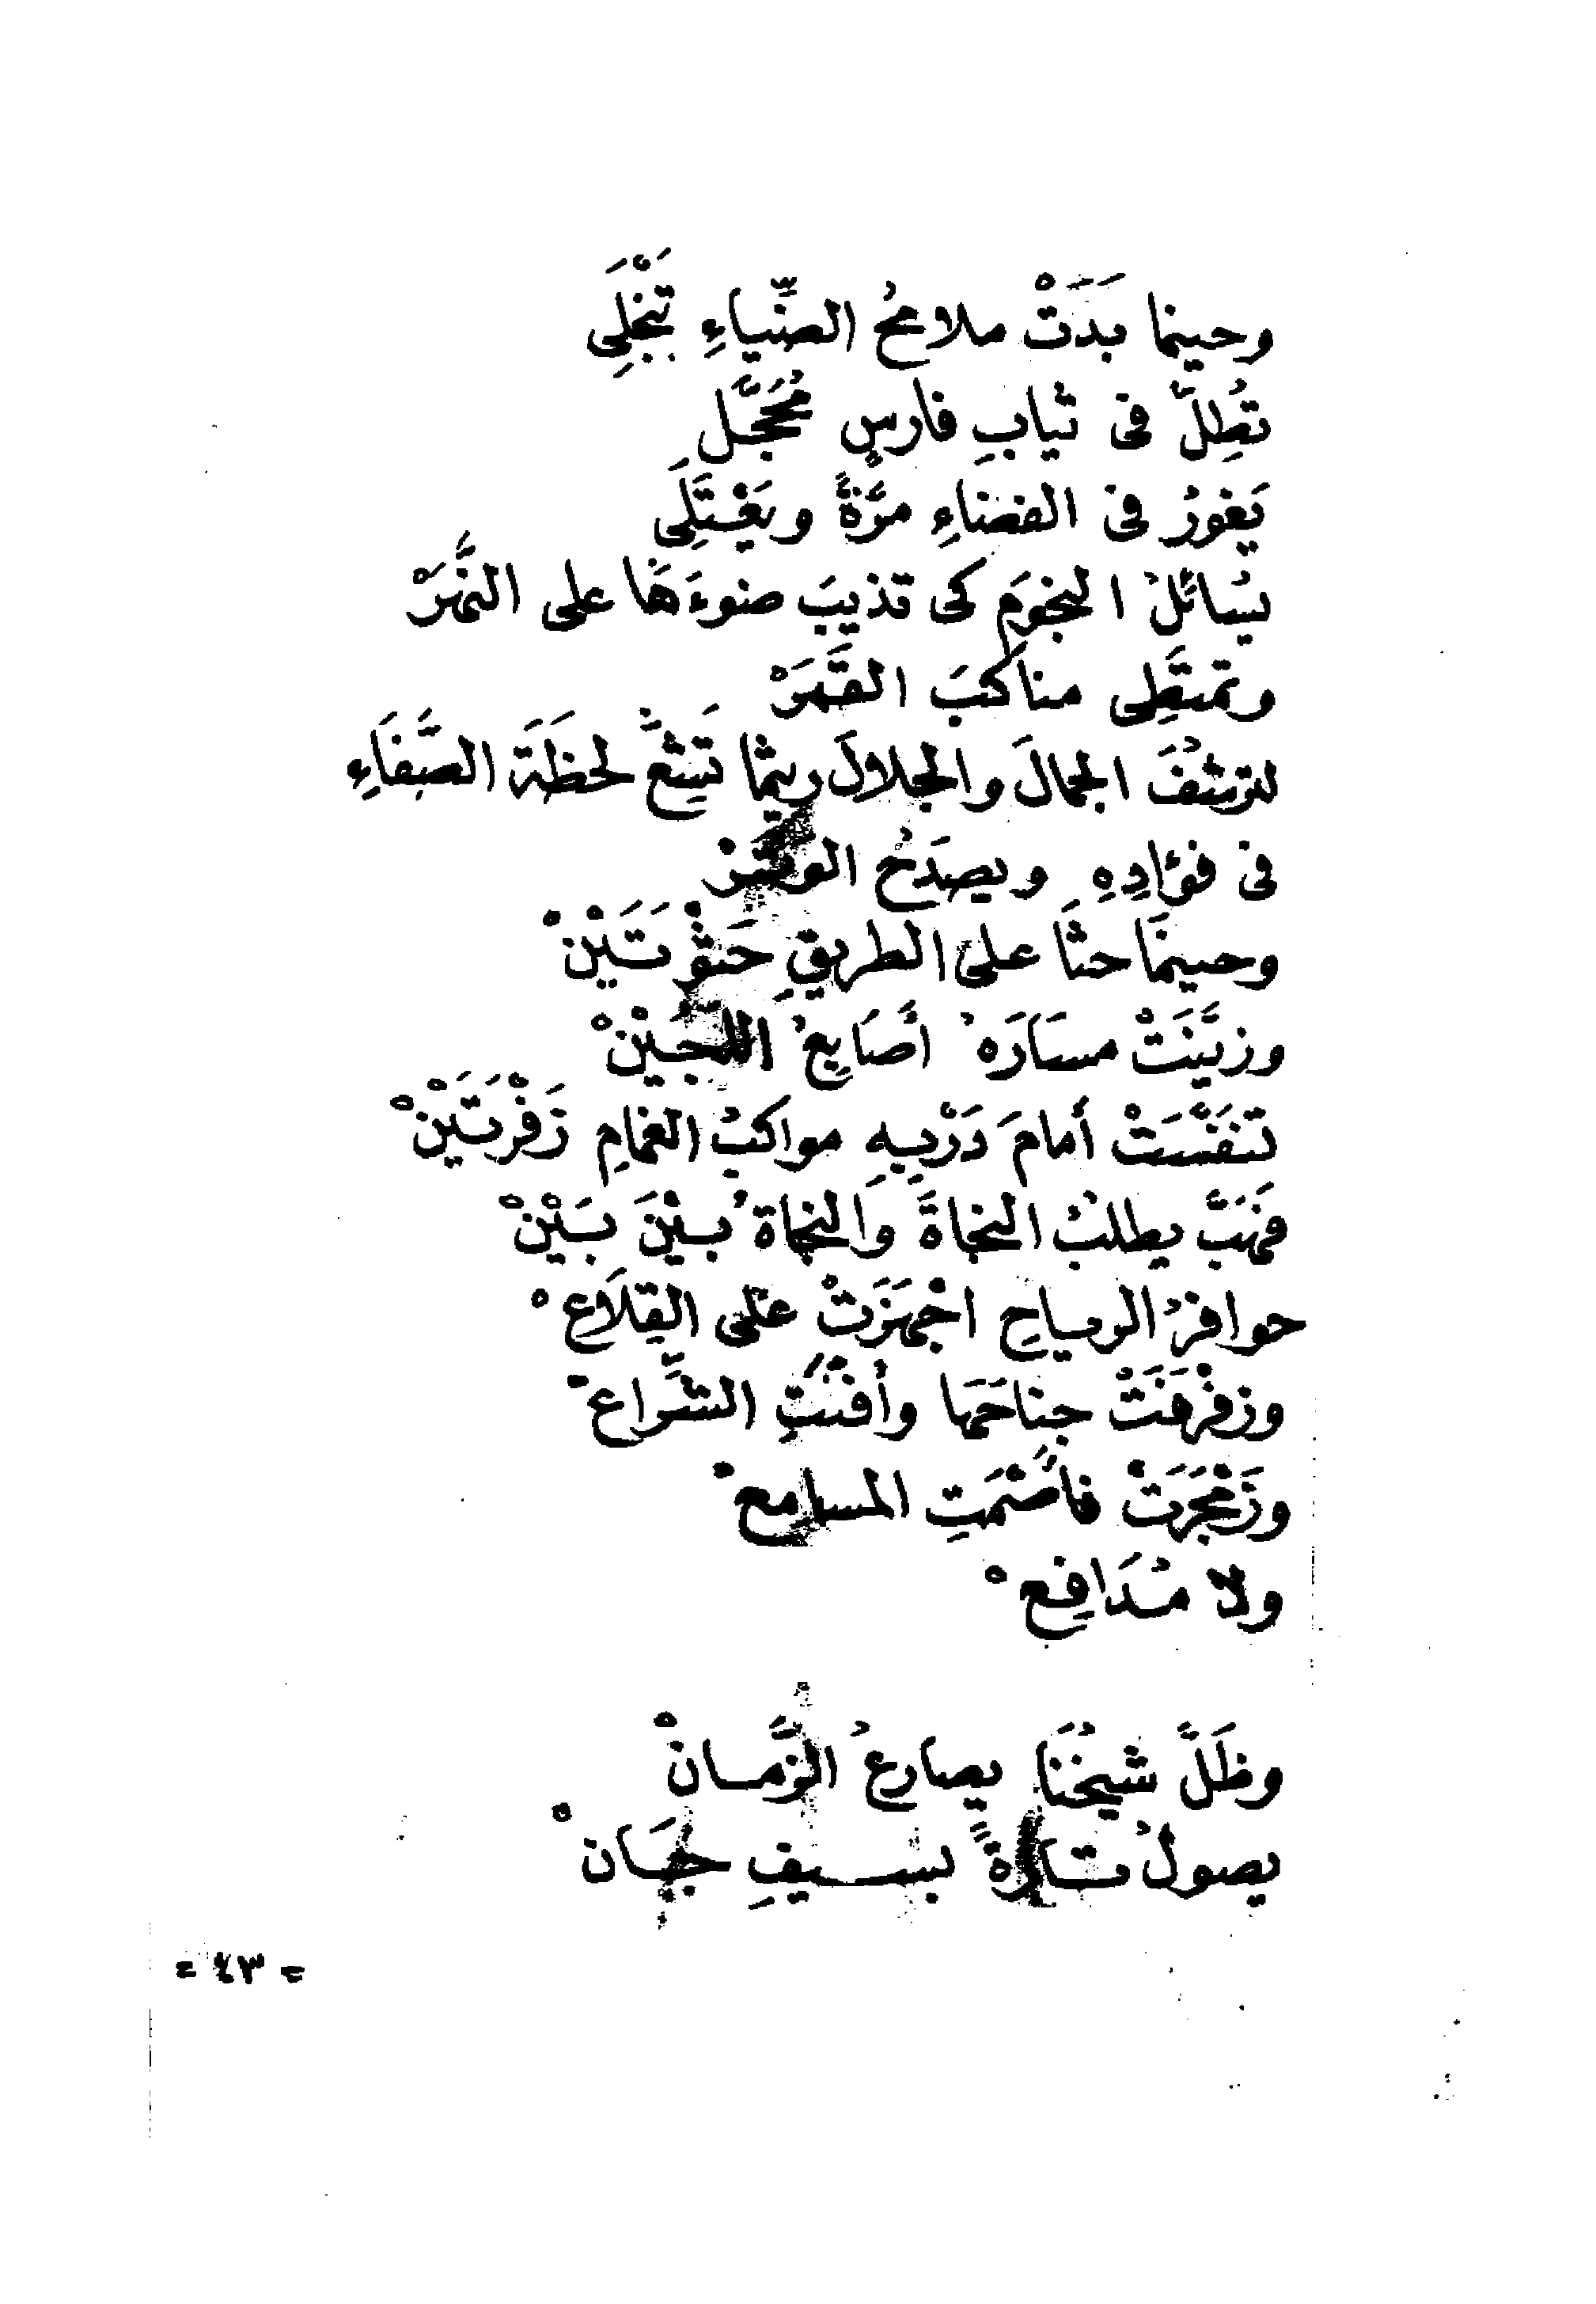 وحينما بَدَتْ ملامحُ الضِّياءِ تَنْجَلِى
تُطِلّ فى ثيابِ فارسٍ مُحَجَّلِ
يَغورُ فى الفضاءِ مرَّةً ويَعْتَلِى
يسائلُ النجومَ كى تذيبَ ضوءَهَا على النَّهَرْ
وتمتَطِى مناكبَ القَمَرْ
لترشفَ الجمالَ والجلالَ ريثما تَشِعُّ لحظَةَ الصَّفَاءِ
فى فؤادِهِ ويصدَحُ الوتَرْ
وحينمَا حثَا على الطريقِ حَثْوَتَيْنْ
وزيَّنَتْ مسَارَهُ أصَابِعُ اللُّجَيْنْ
تنفَّسَتْ أمامَ دَرْبِهِ مواكبُ الغمامِ زَفْرَتَيْنْ
فهَبَّ يطلبُ النجاةَ والنجاةُ بيْنَ بَيْنْ
حوافرُ الرياحِ اجْهَزَتْ على القِلاَعْ
وزفْرَفَتْ جناحَهَا وأفْنَتِ الشِّرَاعْ
وزَمْجَرَتْ فأصَمَّتِ المسامعْ
ولا مُدَافِعْ
وظَلَّ شيخُنَا يصارعُ الزَّمانْ
يصولُ تارةً بسيفِ جَبَانْ
= ٤٣ =